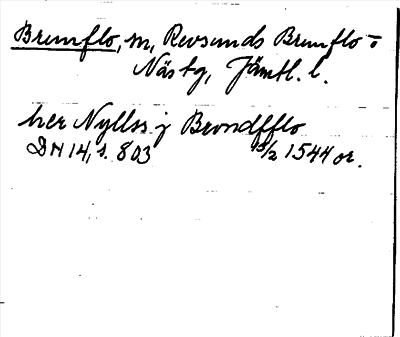 Brunflo, m, Revsunds Brunflo o
Näs tg, Jämtl. l.
her Nyllss j Brondfflo
DN 14, s. 803 15/2 1544 or.